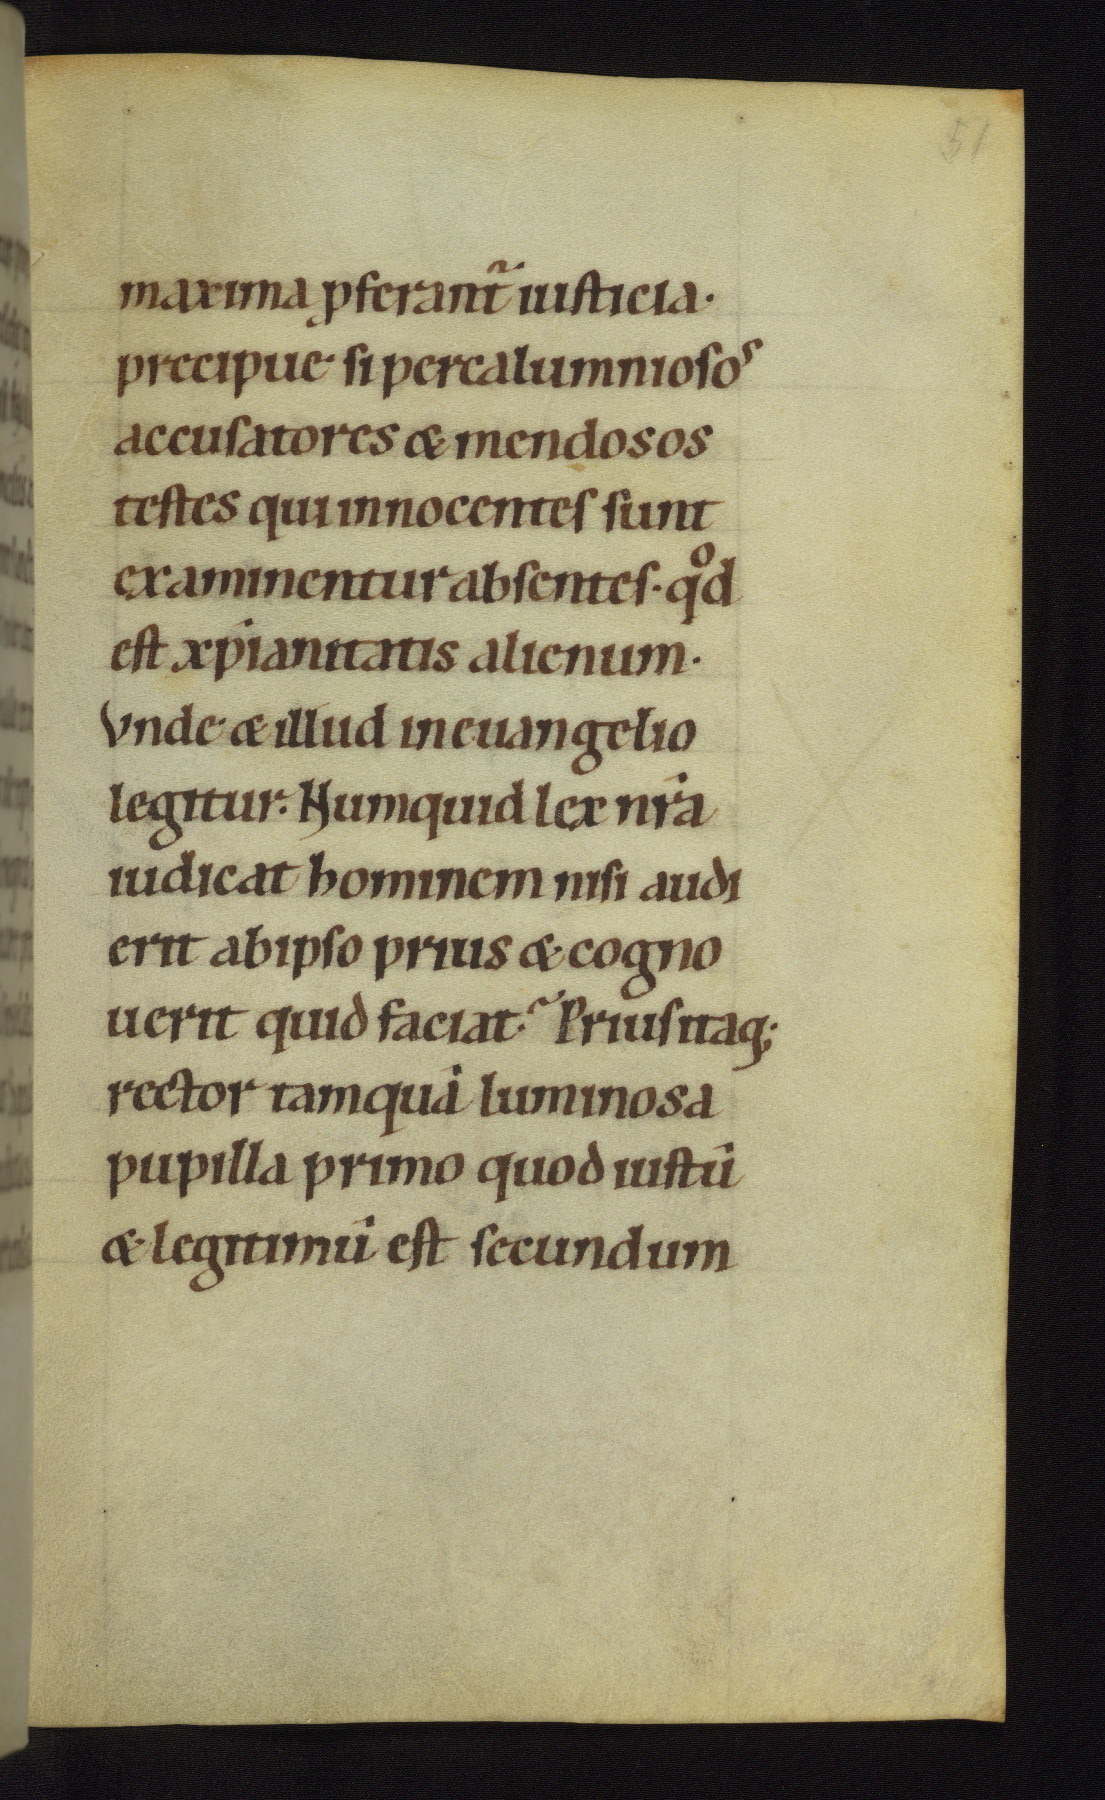 51
maxima ꝓferant᷑ iusticia·
precipue· si per calumniosos
accusatores & mendosos
testes qui innocentes sunt
examinentur absentes· qͦd
est xp̄ianitatis alienum·
Vnde & illud in euangelio
legitur· Numquid lex nr̄a
iudicat hominem nisi audi
erit ab ipso prius & cogno
uerit quid faciat? Prius itaq;
rector tamquā luminosa
pupilla primo quod iustū
& legitimū est secundum